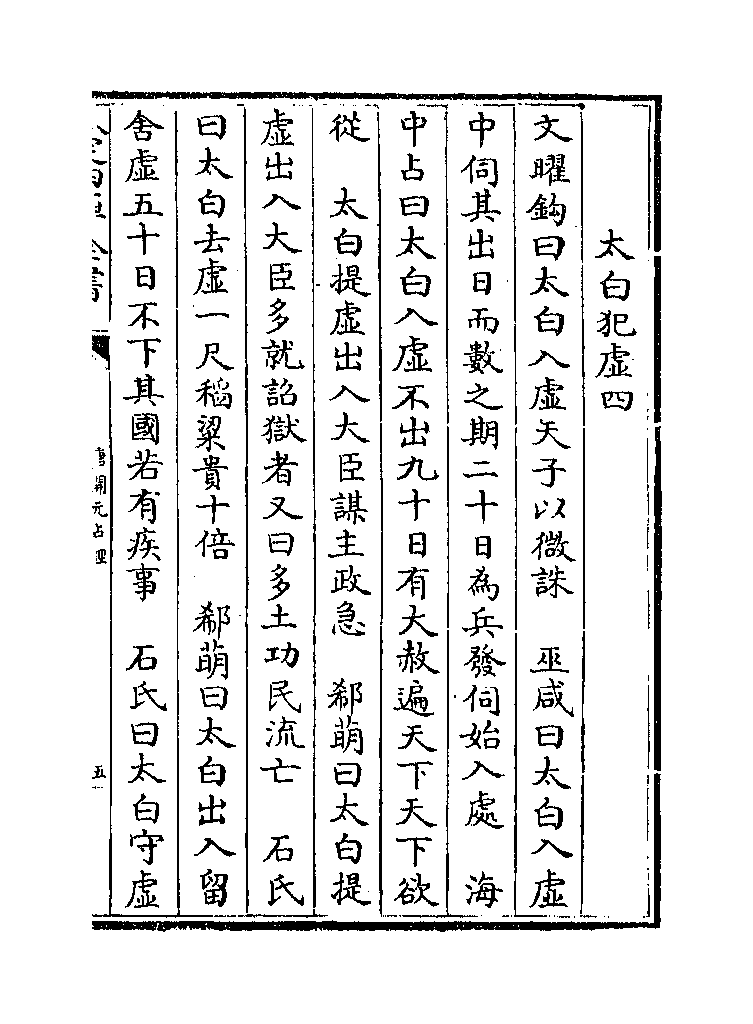 太白犯虛四
文曜鈎曰太白入虛天子以微誅　巫咸曰太白入虛
中伺其出日而數之期二十日為兵發伺始入處　海
中占曰太白入虛不出九十日有大赦遍天下天下欲
從　太白提虛出入大臣謀主政急　郗萌曰太白提
虛出入大臣多就詔獄者又曰多土功民流亡　石氏
曰太白去虛一尺稻粱貴十倍　郗萌曰太白出入留
舍虛五十日不下其國若有疾事　石氏曰太白守虛
全書
唐開元占經
五